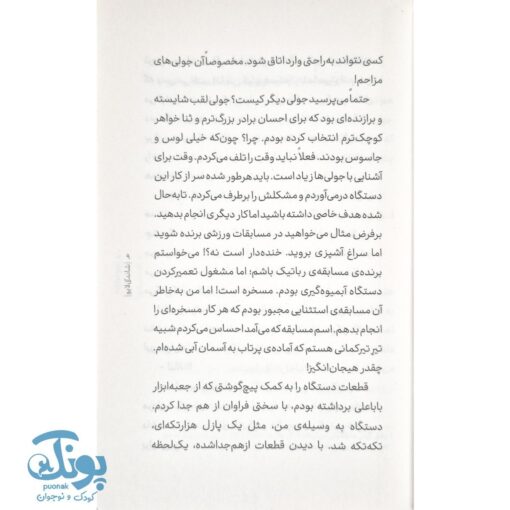 کسی نتواند به‌راحتی وارد اتاق شود. مخصوصاً آن جولی‌های
مزاحم!
حتماً می‌پرسید جولی دیگر کیست؟ جولی لقب شایسته
و برازنده‌ای بود که برای احسان برادر بزرگ‌ترم و ثنا خواهر
کوچک‌ترم انتخاب کرده بودم. چرا؟ چون‌که خیلی لوس و
جاسوس بودند. فعلاً نباید وقت را تلف می‌کردم. وقت برای
آشنایی با جولی‌ها زیاد است. باید هرطور شده سر از کار این
دستگاه درمی‌آوردم و مشکلش را برطرف می‌کردم. تابه‌حال
شده هدف خاصی داشته باشید اما کار دیگری انجام بدهید.
برفرض مثال می‌خواهید در مسابقات ورزشی برنده شوید
اما سراغ آشپزی بروید. خنده‌دار است نه؟! می‌خواستم
برنده‌ی مسابقه‌ی رباتیک باشم؛ اما مشغول تعمیرکردن
دستگاه آبمیوه‌گیری بودم. مسخره است! اما من به‌خاطر
آن مسابقه‌ی استثنایی مجبور بودم که هر کار مسخره‌ای را
انجام بدهم. اسم مسابقه که می‌آمد احساس می‌کردم شبیه
تیرِ تیرکمانی هستم که آماده‌ی پرتاب به آسمان آبی شده‌ام.
چقدر هیجان‌انگیز!
قطعات دستگاه را به کمک پیچ‌گوشتی که از جعبه‌ابزار
باباعلی برداشته بودم، با سختی فراوان از هم جدا کردم.
دستگاه به وسیله‌ی من، مثل یک پازل هزارتکه‌ای،
تکه‌تکه شد. با دیدن قطعات ازهم‌جداشده، یک‌لحظه
پونک
puonak
کودک و نوجوان